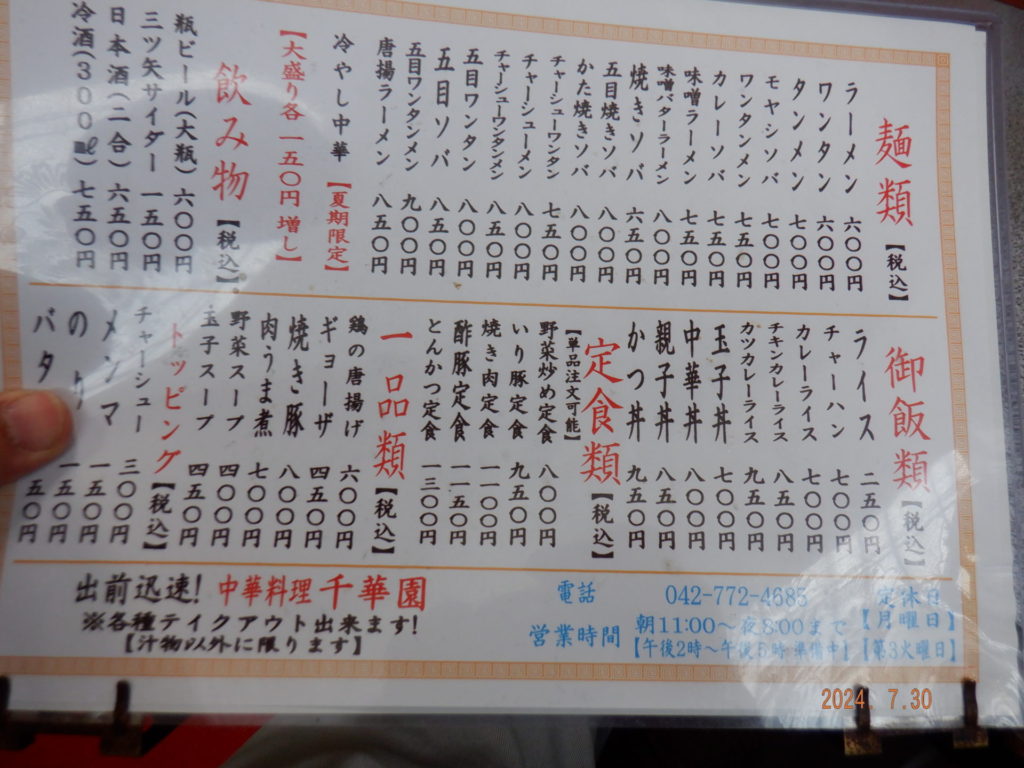 麺類【税込】
ラーメン 六〇〇円
ワンタン 六〇〇円
タンメン 七〇〇円
モヤシソバ 七〇〇円
ワンタンメン 七五〇円
カレーソバ 七五〇円
味噌ラーメン 七五〇円
味噌バターラーメン 八〇〇円
焼きソバ 六五〇円
五目焼きソバ 八〇〇円
かた焼きソバ 八〇〇円
チャーシューワンタン 七五〇円
チャーシューメン 八〇〇円
チャーシューワンタンメン 八五〇円
五目ワンタン 八〇〇円
五目ソバ 八五〇円
五目ワンタンメン 九〇〇円
唐揚ラーメン 八五〇円
冷やし中華【夏期限定】
【大盛り各 一五〇円 増し】
飲み物【税込】
瓶ビール(大瓶) 六〇〇円
三ツ矢サイダー 一五〇円
日本酒(二合) 六五〇円
冷酒(300㎖) 七五〇円
御飯類【税込】
ライス 二五〇円
チャーハン 七〇〇円
カレーライス 七〇〇円
チキンカレーライス 八五〇円
カツカレーライス 九五〇円
玉子丼 七〇〇円
中華丼 八〇〇円
親子丼 八五〇円
かつ丼 九五〇円
定食類【税込】
【単品注文可能】
野菜炒め定食 八〇〇円
いり豚定食 九五〇円
焼き肉定食 一一〇〇円
酢豚定食 一一五〇円
とんかつ定食 一三〇〇円
一品類【税込】
鶏の唐揚げ 六〇〇円
ギョーザ 四五〇円
焼き豚 八〇〇円
肉うま煮 七〇〇円
野菜スープ 四〇〇円
玉子スープ 四五〇円
トッピング【税込】
チャーシュー 三〇〇円
メンマ 一五〇円
のり 一五〇円
バタ 一五〇円
出前迅速! 中華料理 千華園
※各種テイクアウト出来ます!
【汁物以外に限ります】
電話 042-772-4685
営業時間 朝11:00〜夜8:00まで
【午後2時〜午後5時 準備中】
定休日
【月曜日】
【第3火曜日】
2024. 7.30